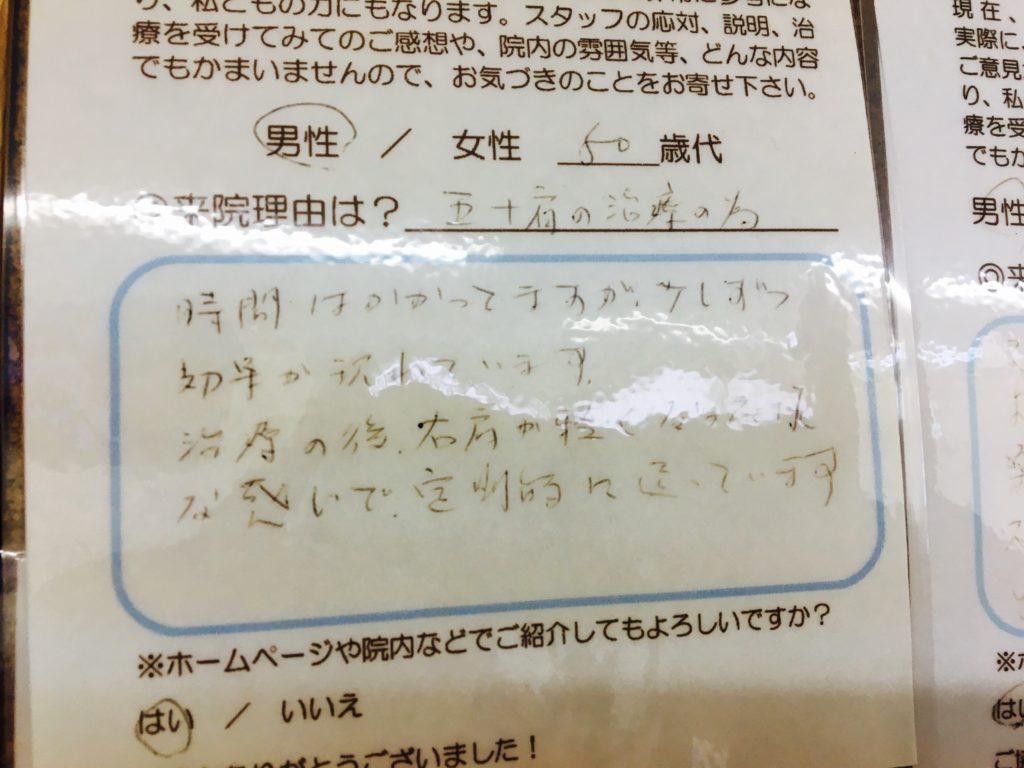 り、私どもの力にもなります。スタッフの応対、説明、治
療を受けてみてのご感想や、院内の雰囲気等、どんな内容
でもかまいませんので、お気づきのことをお寄せ下さい。
男性 / 女性 50歳代
◎来院理由は? 五十肩の治療の為
時間はかかってますが、少しずつ
効果が現れています。
治療の後、右肩が軽くなった様
な感じで、定期的に通っています
※ホームページや院内などでご紹介してもよろしいですか?
はい / いいえ
ありがとうございました!
現在、
実際に、
ご意見
り、私
療を受
でもか
男性
◎来
※ホ
はい